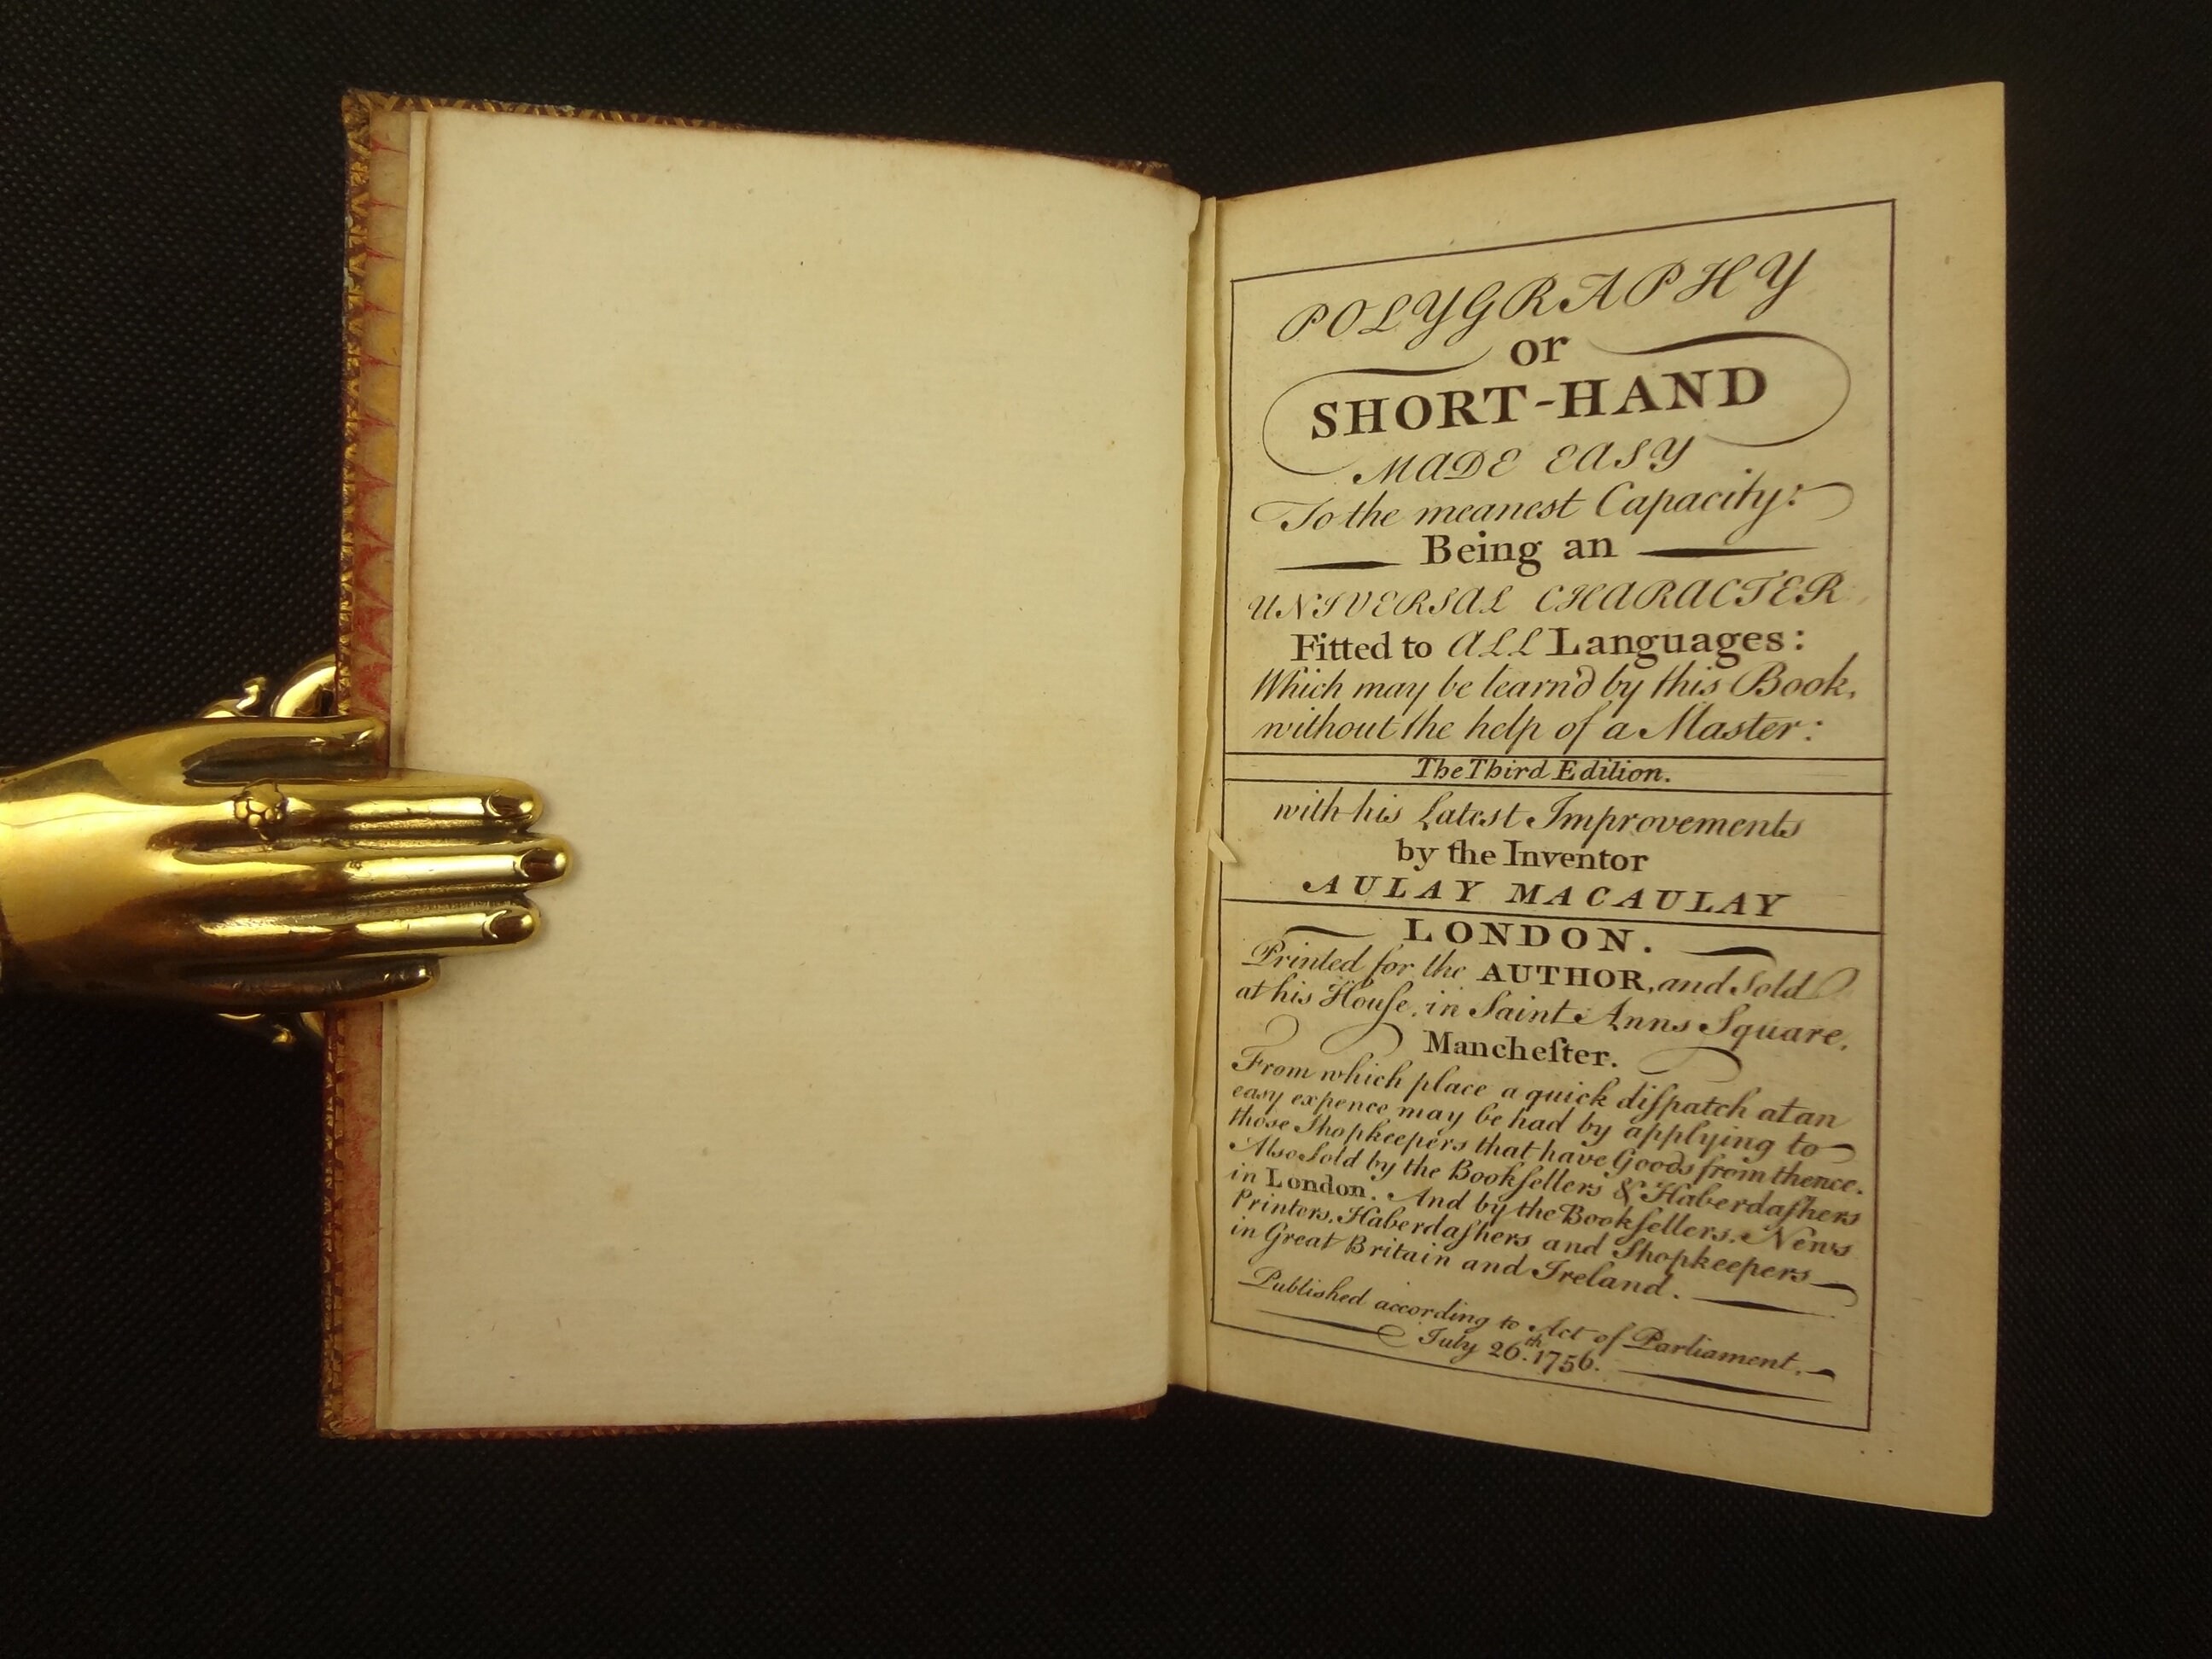 POLYGRAPHY
or
SHORT-HAND
MADE EASY
To the meanest Capacity:
Being an
UNIVERSAL CHARACTER
Fitted to ALL Languages:
Which may be learn'd by this Book,
without the help of a Master:
The Third Edition.
with his Latest Improvements
by the Inventor
AULAY MACAULAY
LONDON.
Printed for the AUTHOR, and Sold
at his Houſe, in Saint Anns Square,
Mancheſter.
From which place a quick diſpatch at an
easy expence may be had by applying to
those Shopkeepers that have Goods from thence.
Also Sold by the Bookſellers & Haberdaſhers
in London. And by the Bookſellers, News
Printers, Haberdaſhers and Shopkeepers
in Great Britain and Ireland.
Published according to Act of Parliament.
July 26.th 1756.